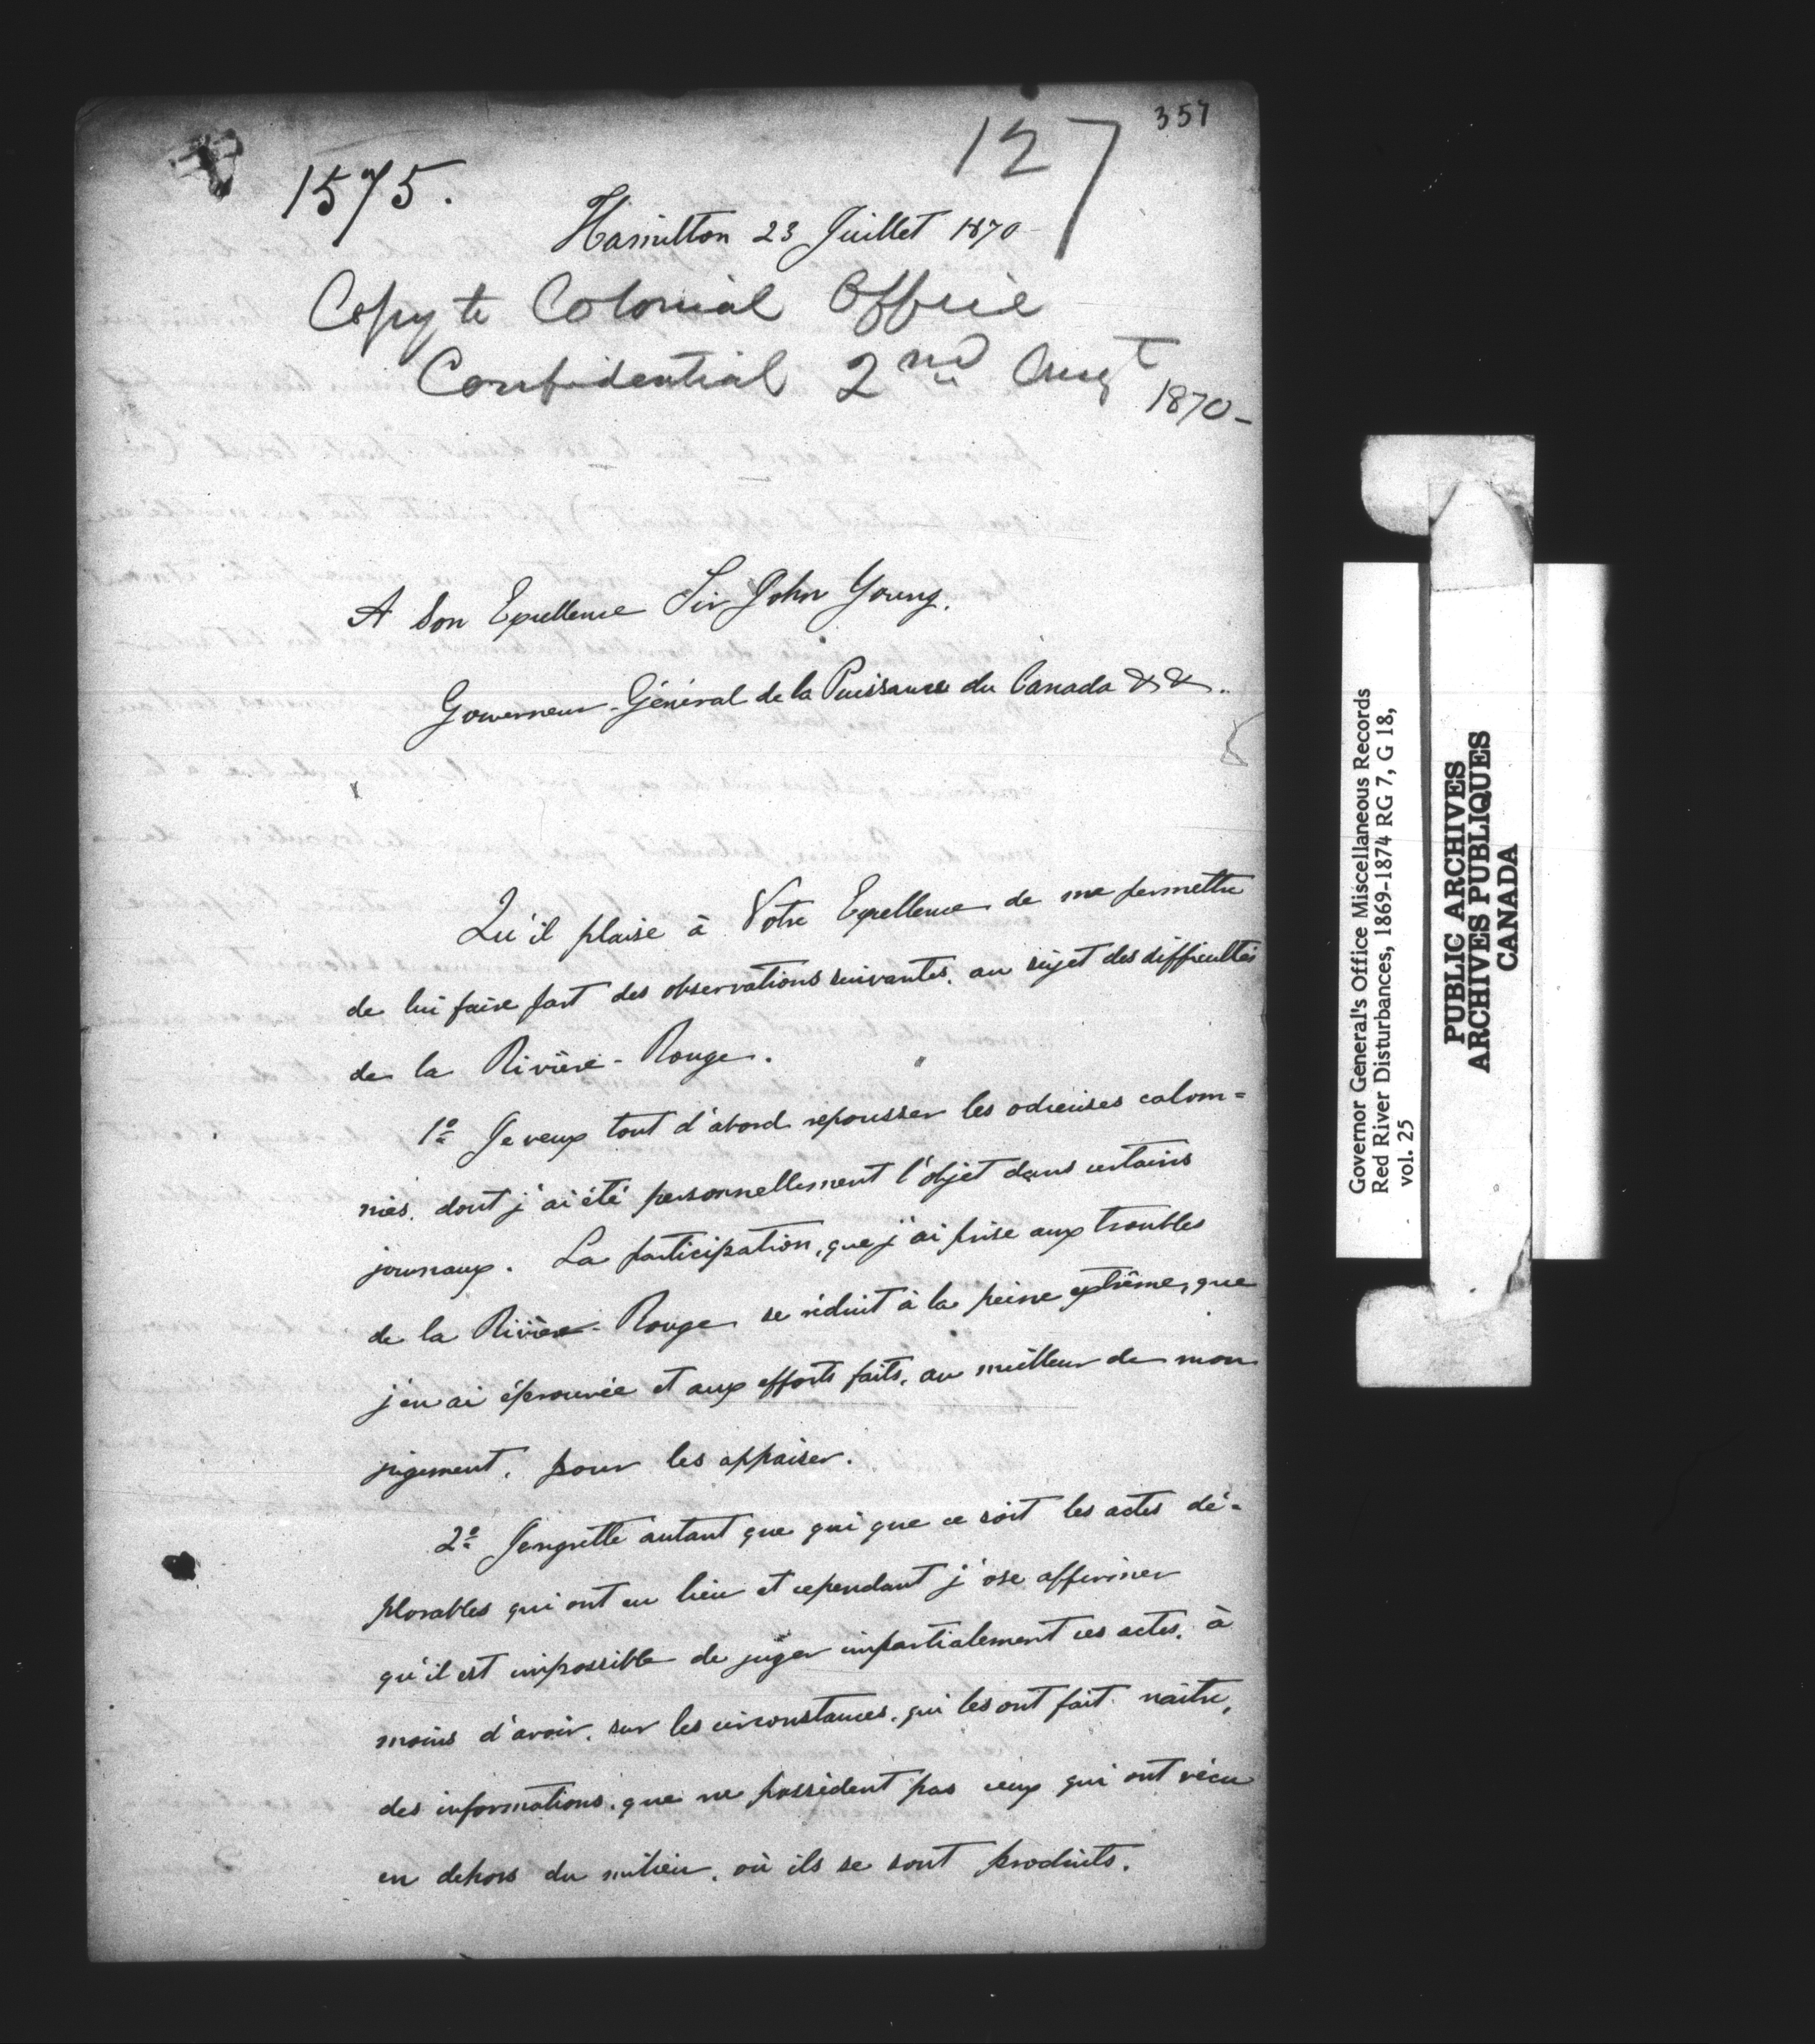 357
127
1575.
Hamilton 23 Juillet 1870
Copy to Colonial Office
Confidential 2nd Augt
1870-
A Son Excellence Sir John Young,
Gouverneur-Général de la Puissance du Canada & &..
Qu'il plaise à Votre Excellence de me permettre
de lui faire part des observations suivantes, au sujet des difficultés
de la Rivière-Rouge.
1o Je veux tout d'abord repousser les odieuses calom=
nies, dont j'ai été personnellement l'objet dans certains
journaux. La participation, que j'ai prise aux troubles
de la Rivière-Rouge se réduit à la peine extrême, que
j'en ai éprouvée et aux efforts faits, au meilleur de mon
jugement, pour les appaiser.
2o Je regrette autant que qui que ce soit les actes dé=
plorables qui ont eu lieu et cependant j'ose affirmer
qu'il est impossible de juger impartialement ces actes, à
moins d'avoir, sur les circonstances, qui les ont fait naître,
des informations, que ne possèdent pas ceux qui ont vécu
en dehors du milieu, où ils se sont produits.
Governor General's Office Miscellaneous Records
Red River Disturbances, 1869-1874 RG 7, G 18,
vol. 25
PUBLIC ARCHIVES
ARCHIVES PUBLIQUES
CANADA